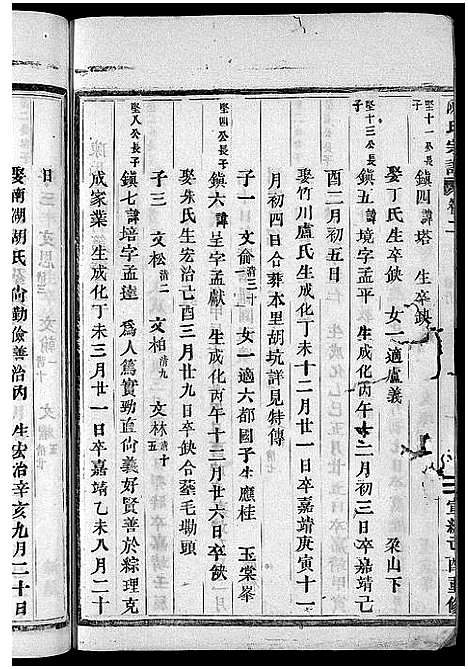 氏宗譜 卷二
宣統己酉重修
堅十一公長子 鎮四 諱塔 生卒缺
娶丁氏生卒缺 女一適盧義 山下
堅十三公長子 鎮五 諱境字孟平 生成化丙午十二月初三日卒嘉靖己
酉二月初五日
娶竹川盧氏生成化丁未十二月廿一日卒嘉靖庚寅十一
月初四日合葬本里胡坑詳見特傳
子一 文侖 清三十 女一適六都國子生應桂 玉棠峯
堅四公長子 鎮六 諱呈字孟獻 生成化丙午十二月廿六日卒缺
娶朱氏生宏治己酉三月廿九日卒缺合葬毛坳頭
子三 文松 清二 文柏 清九 文林 清十五
堅八公長子 鎮七 諱培字孟逵 為人篤實勁直尚義好賢善於綜理克
成家業 生成化丁未三月廿一日卒嘉靖乙未八月二十
日
娶南湖胡氏尚勤儉善治內 生宏治辛亥九月二十日